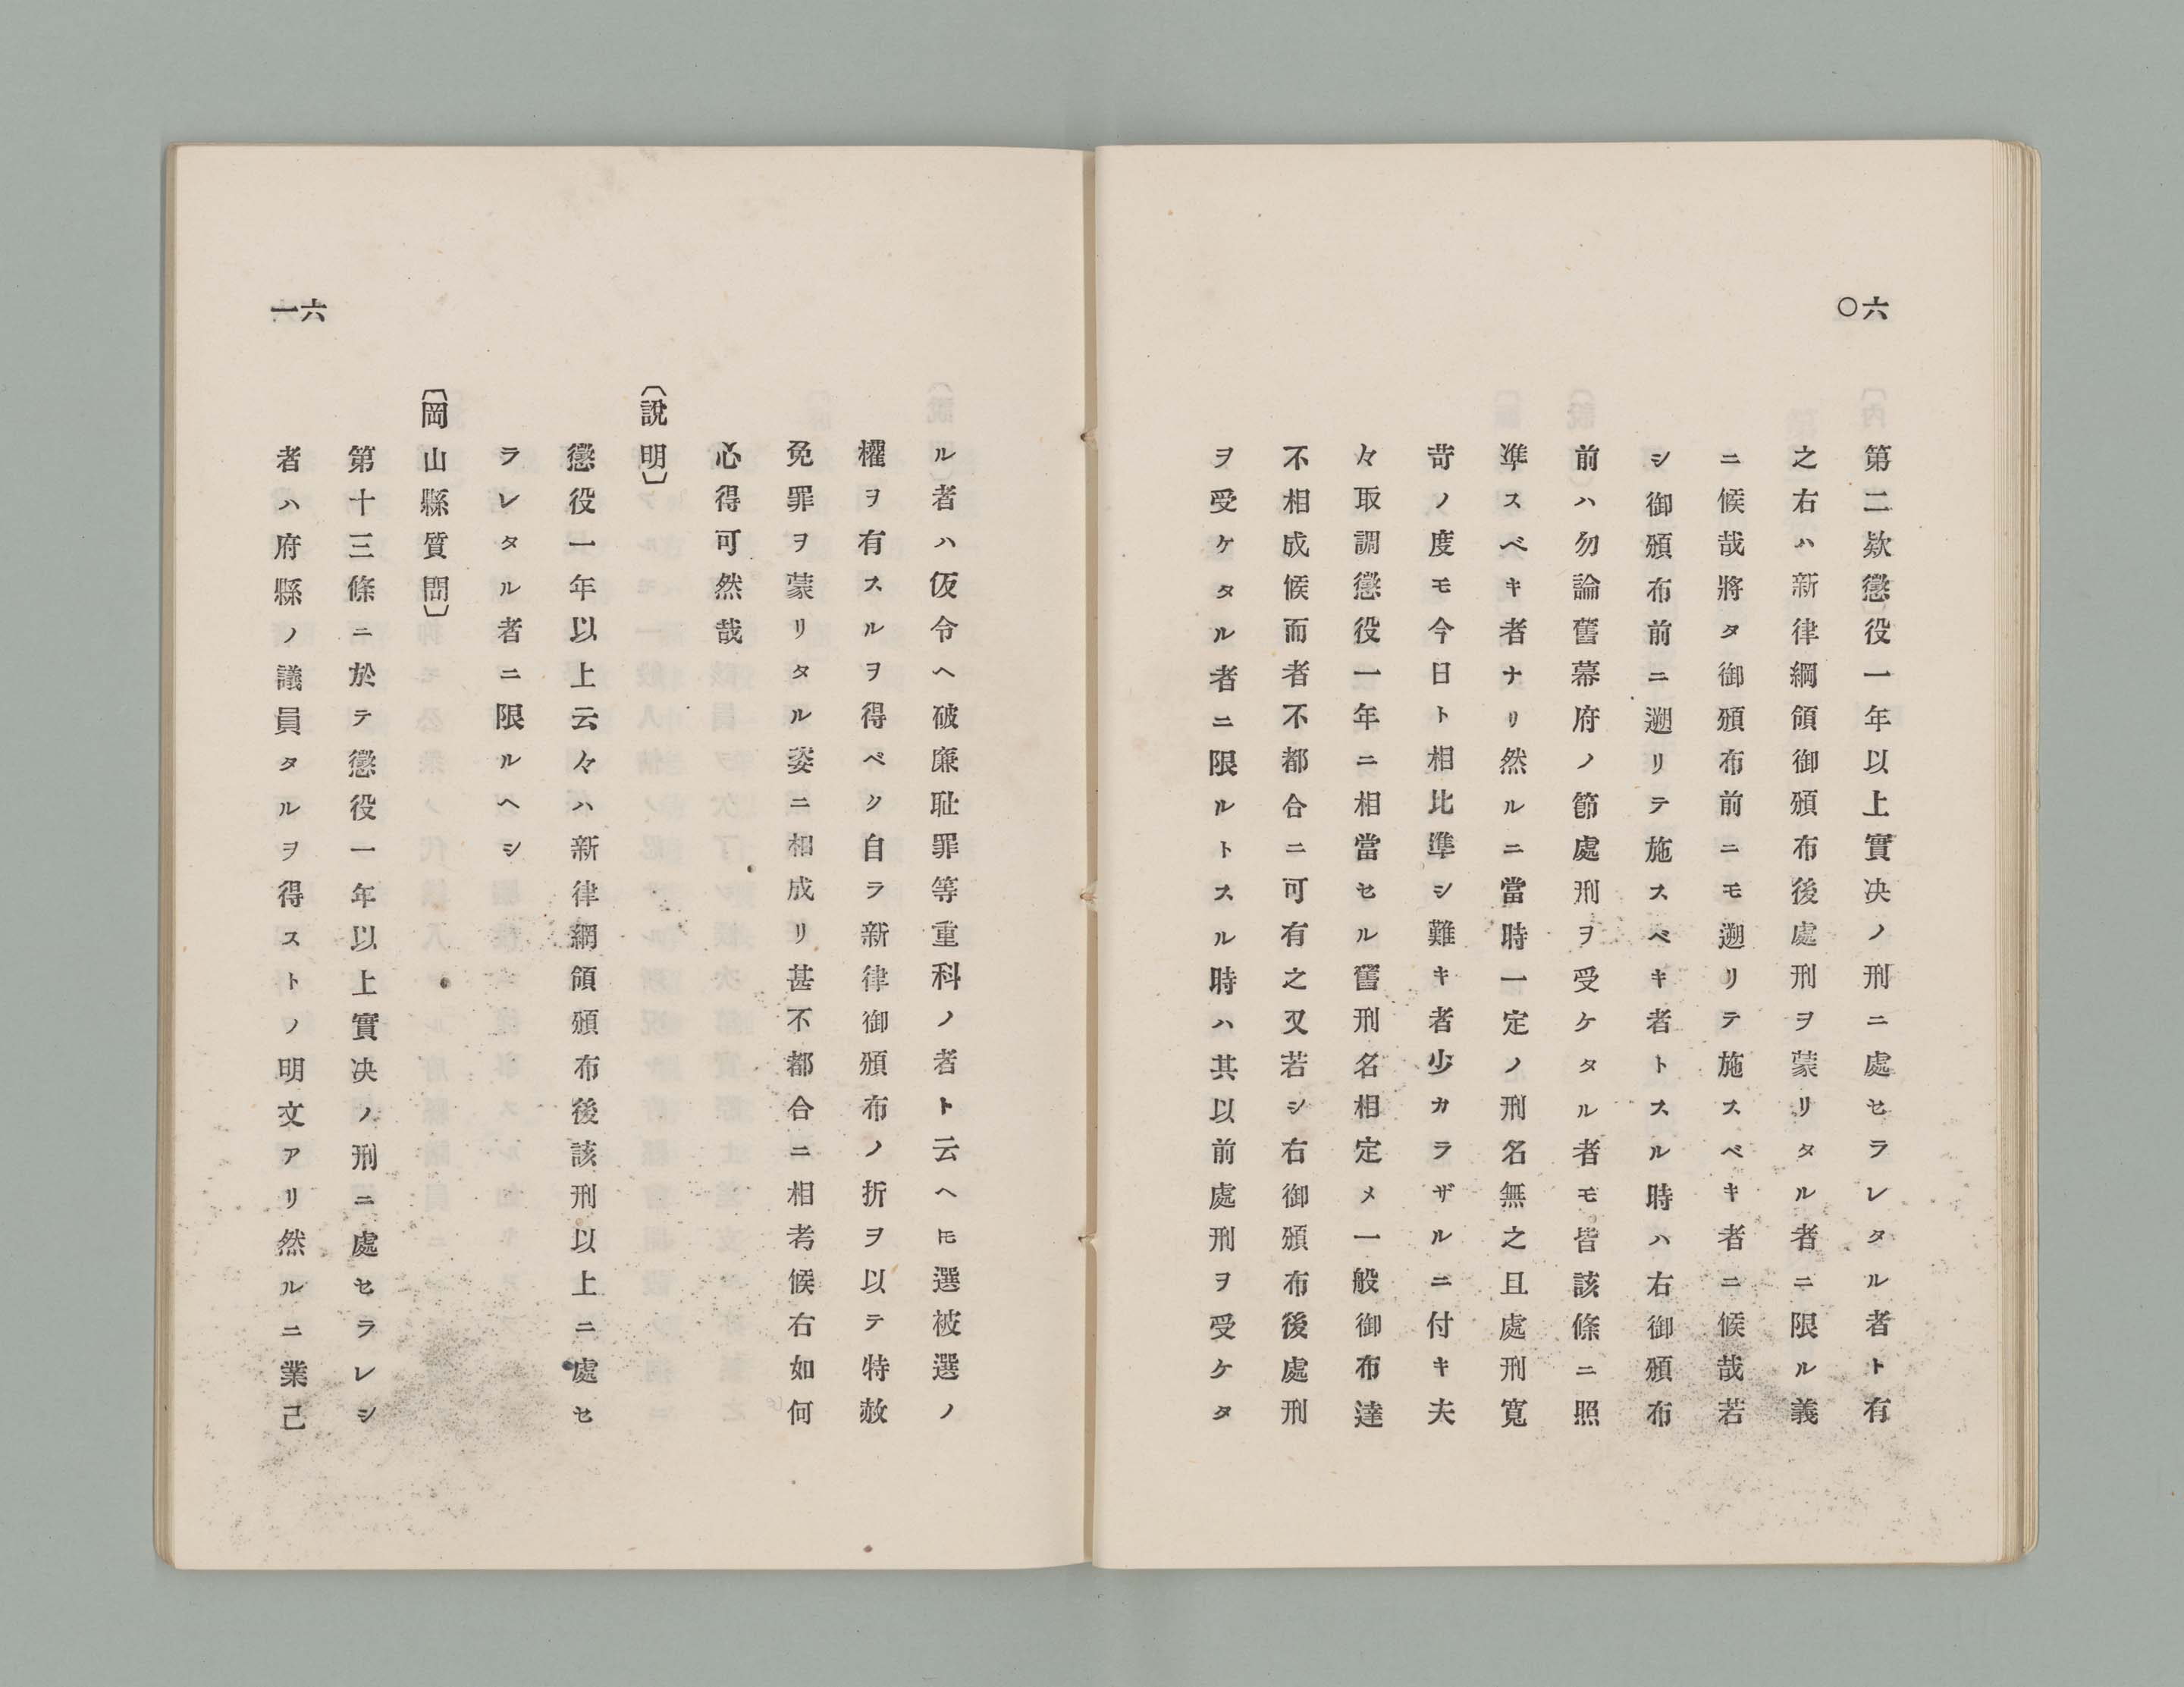 六〇
第二欵懲役一年以上實决ノ刑ニ處セラレタル者ト有
之右ハ新律綱領御頒布後處刑ヲ蒙リタル者ニ限ル義
ニ候哉將タ御頒布前ニモ遡リテ施スベキ者ニ候哉若
シ御頒布前ニ遡リテ施スベキ者トスル時ハ右御頒布
前ハ勿論舊幕府ノ節處刑ヲ受ケタル者モ皆該條ニ照
準スベキ者ナリ然ルニ當時一定ノ刑名無之且處刑寬
苛ノ度モ今日ト相比準シ難キ者少カラザルニ付キ夫
々取調懲役一年ニ相當セル舊刑名相定メ一般御布達
不相成候而者不都合ニ可有之又若シ右御頒布後處刑
ヲ受ケタル者ニ限ルトスル時ハ其以前處刑ヲ受ケタ
六一
ル者ハ仮令ヘ破廉耻罪等重科ノ者ト云ヘ𪜈選被選ノ
權ヲ有スルヲ得ベク自ラ新律御頒布ノ折ヲ以テ特赦
免罪ヲ蒙リタル姿ニ相成リ甚不都合ニ相考候右如何
心得可然哉
〔說明〕
懲役一年以上云々ハ新律綱領頒布後該刑以上ニ處セ
ラレタル者ニ限ルヘシ
〔岡山縣質問〕
第十三條ニ於テ懲役一年以上實决ノ刑ニ處セラレシ
者ハ府縣ノ議員タルヲ得ストノ明文アリ然ルニ業己